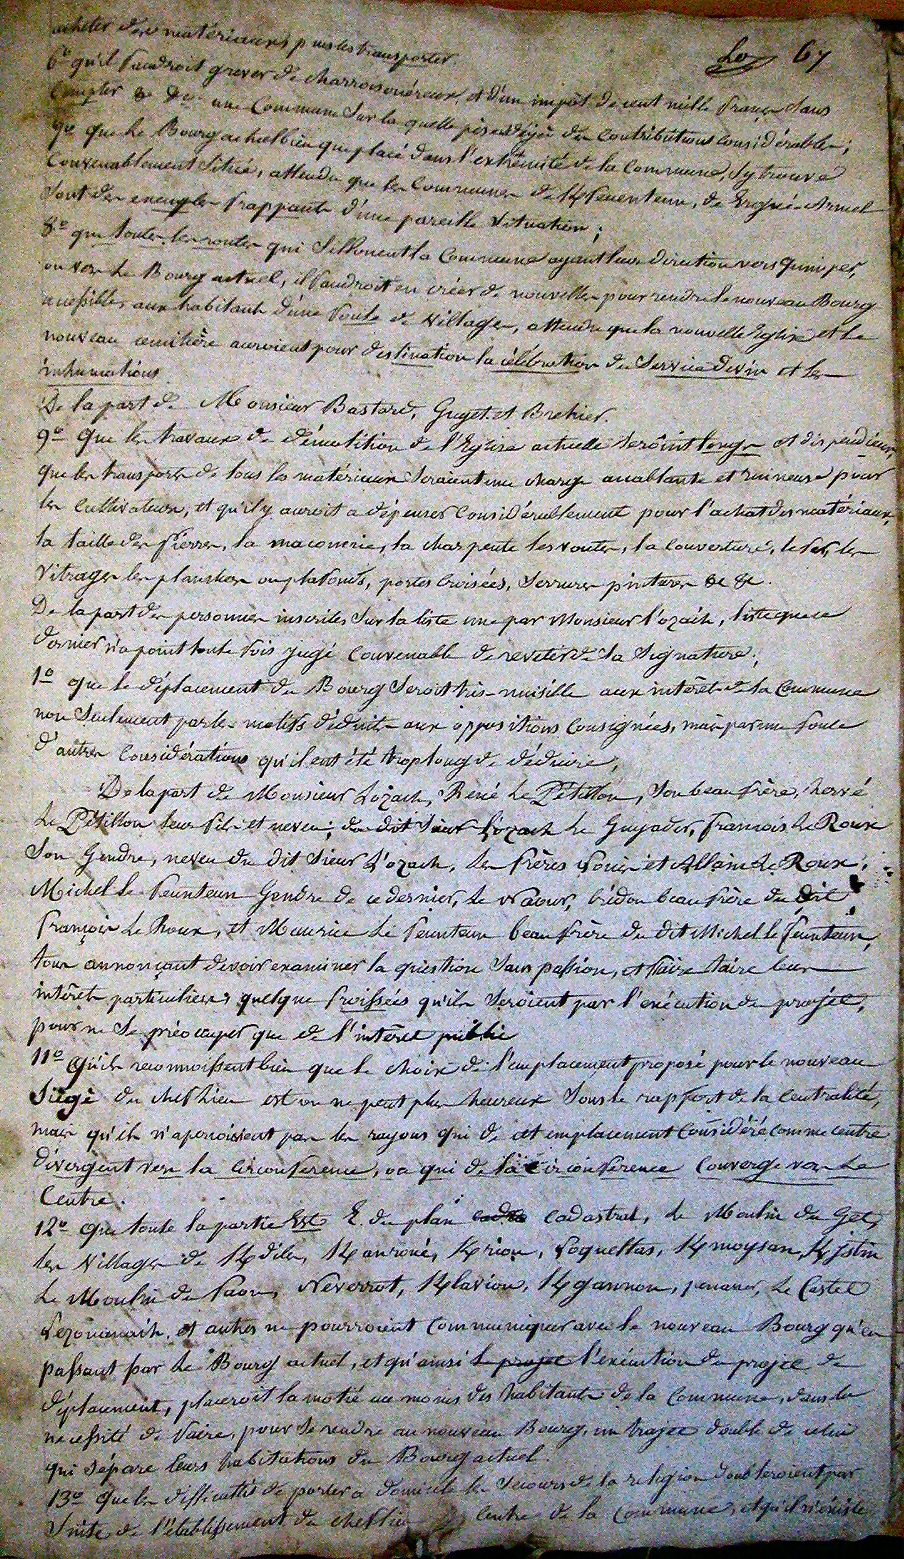 Lo 67
acheter des matériaux, puis les transporter.
6° qu'il faudroit grever de charrois onéreux, et d'un impôt de cent mille francs sans
compter &c &c une Commune sur la quelle pèsent déjà des Contributions considérables;
7° que le Bourg actuel bien que placé dans l'extrémité de la Commune, s'y trouve
Convenablement Situé, attendu que les Communes de K/feuenteun, de Ergué-Armel
sont des exemples frappants d'une pareille situation;
8° que toutes les routes qui Sillonent la Commune ayant leur direction vers quimper,
ou vers le Bourg actuel, il faudroit en créer de nouvelles pour rendre le nouveau Bourg
accessible, aux habitants d'une foule de villages, attendu que la nouvelle Eglise et le
nouveau cemitière auroient pour destination la célébration du Service divin et les
inhumations.
De la part de Monsieur Bastard, Guyet et Brehier.
9° Que les travaux de démolition de l'Eglise actuelle seroient longs et dispendieux
que les transports de tous les matériaux seraient une charge accablante et ruineuse pour
les cultivateurs, et qu'il y auroit a dépenser Considérablement pour l'achat des matériaux,
la taille des pierres, la maconerie, la charpente les voutes, la couverture, le fer, les
vitrages les planchers ou plafonds, portes croisées, serrures pintures &c &c.
De la part des personnes inscrites sur la liste une par Monsieur l'ozach, liste que ce
dernier n'a point toute fois jugé Convenable de revetir de sa signature;
1° que le déplacement du Bourg seroit très-nuisible aux intérêts de la Commune
non seulement par les motifs déduits aux oppositions consignées, mais par une foule
d'autres Considérations qu'il eut été trop long de déduire;
De la part de Monsieur Lozach, René Le Pétillon, son beau frère, hervé
Le Pétillon leur fils et neveu; du dit Sieur L'ozach Le Guyader, françois Le Roux
son Gendre, neveu du dit sieur L'ozach, les frères et Allain Le Roux,
Michel le feunteun Gendre de ce dernier, Le Naour, beau frère du dit
françois Le Roux, et Maurice Le feunteun beau frère du dit Michel le feunteun,
tous annonçant devoir examiner la question sans passion, et faire taire leurs
intérêts particuliers, quelque froissées qu'ils seroient par l'exécution du projet,
pour ne se préocuper que de l'intérêt public
11° Qu'ils reconnoissent bien que le choix de l'emplacement proposé pour le nouveau
siège du chef lieu est on ne peut plus heureux sous le rapport de la centralité,
mais qu'ils n'apercoivent pas les rayons qui de cet emplacement considéré comme centre
divergent vers la circonference, ou qui de la circonférence Converge vers le
Centre.
12° que toute la partie Est E. du plan cadastral, le Moulin du Get,
les Villages de K/dilès, K/anroué, K/rion, K/moysan, K/jstin
Le Moulin de faon, Neverrot, K/lavion, K/gannon, penanec, Le Castel
Lezouanach, et autres ne pourroient Communiquer avec le nouveau Bourg qu'en
passant par le Bourg actuel, et qu'ainsi le projet l'exécution du projet de
déplacement, placeroit la moitié au moins des habitants de la Commune, dans la
nécessité de faire, pour se rendre au nouveau Bourg, un trajet double de celui
qui sépare leurs habitations du Bourg actuel.
13° Que les difficultés de porter a domicile les secours de la religion doubleroient par
suite de l'établissement du chef lieu Centre de la Commune, et qu'il n'existe